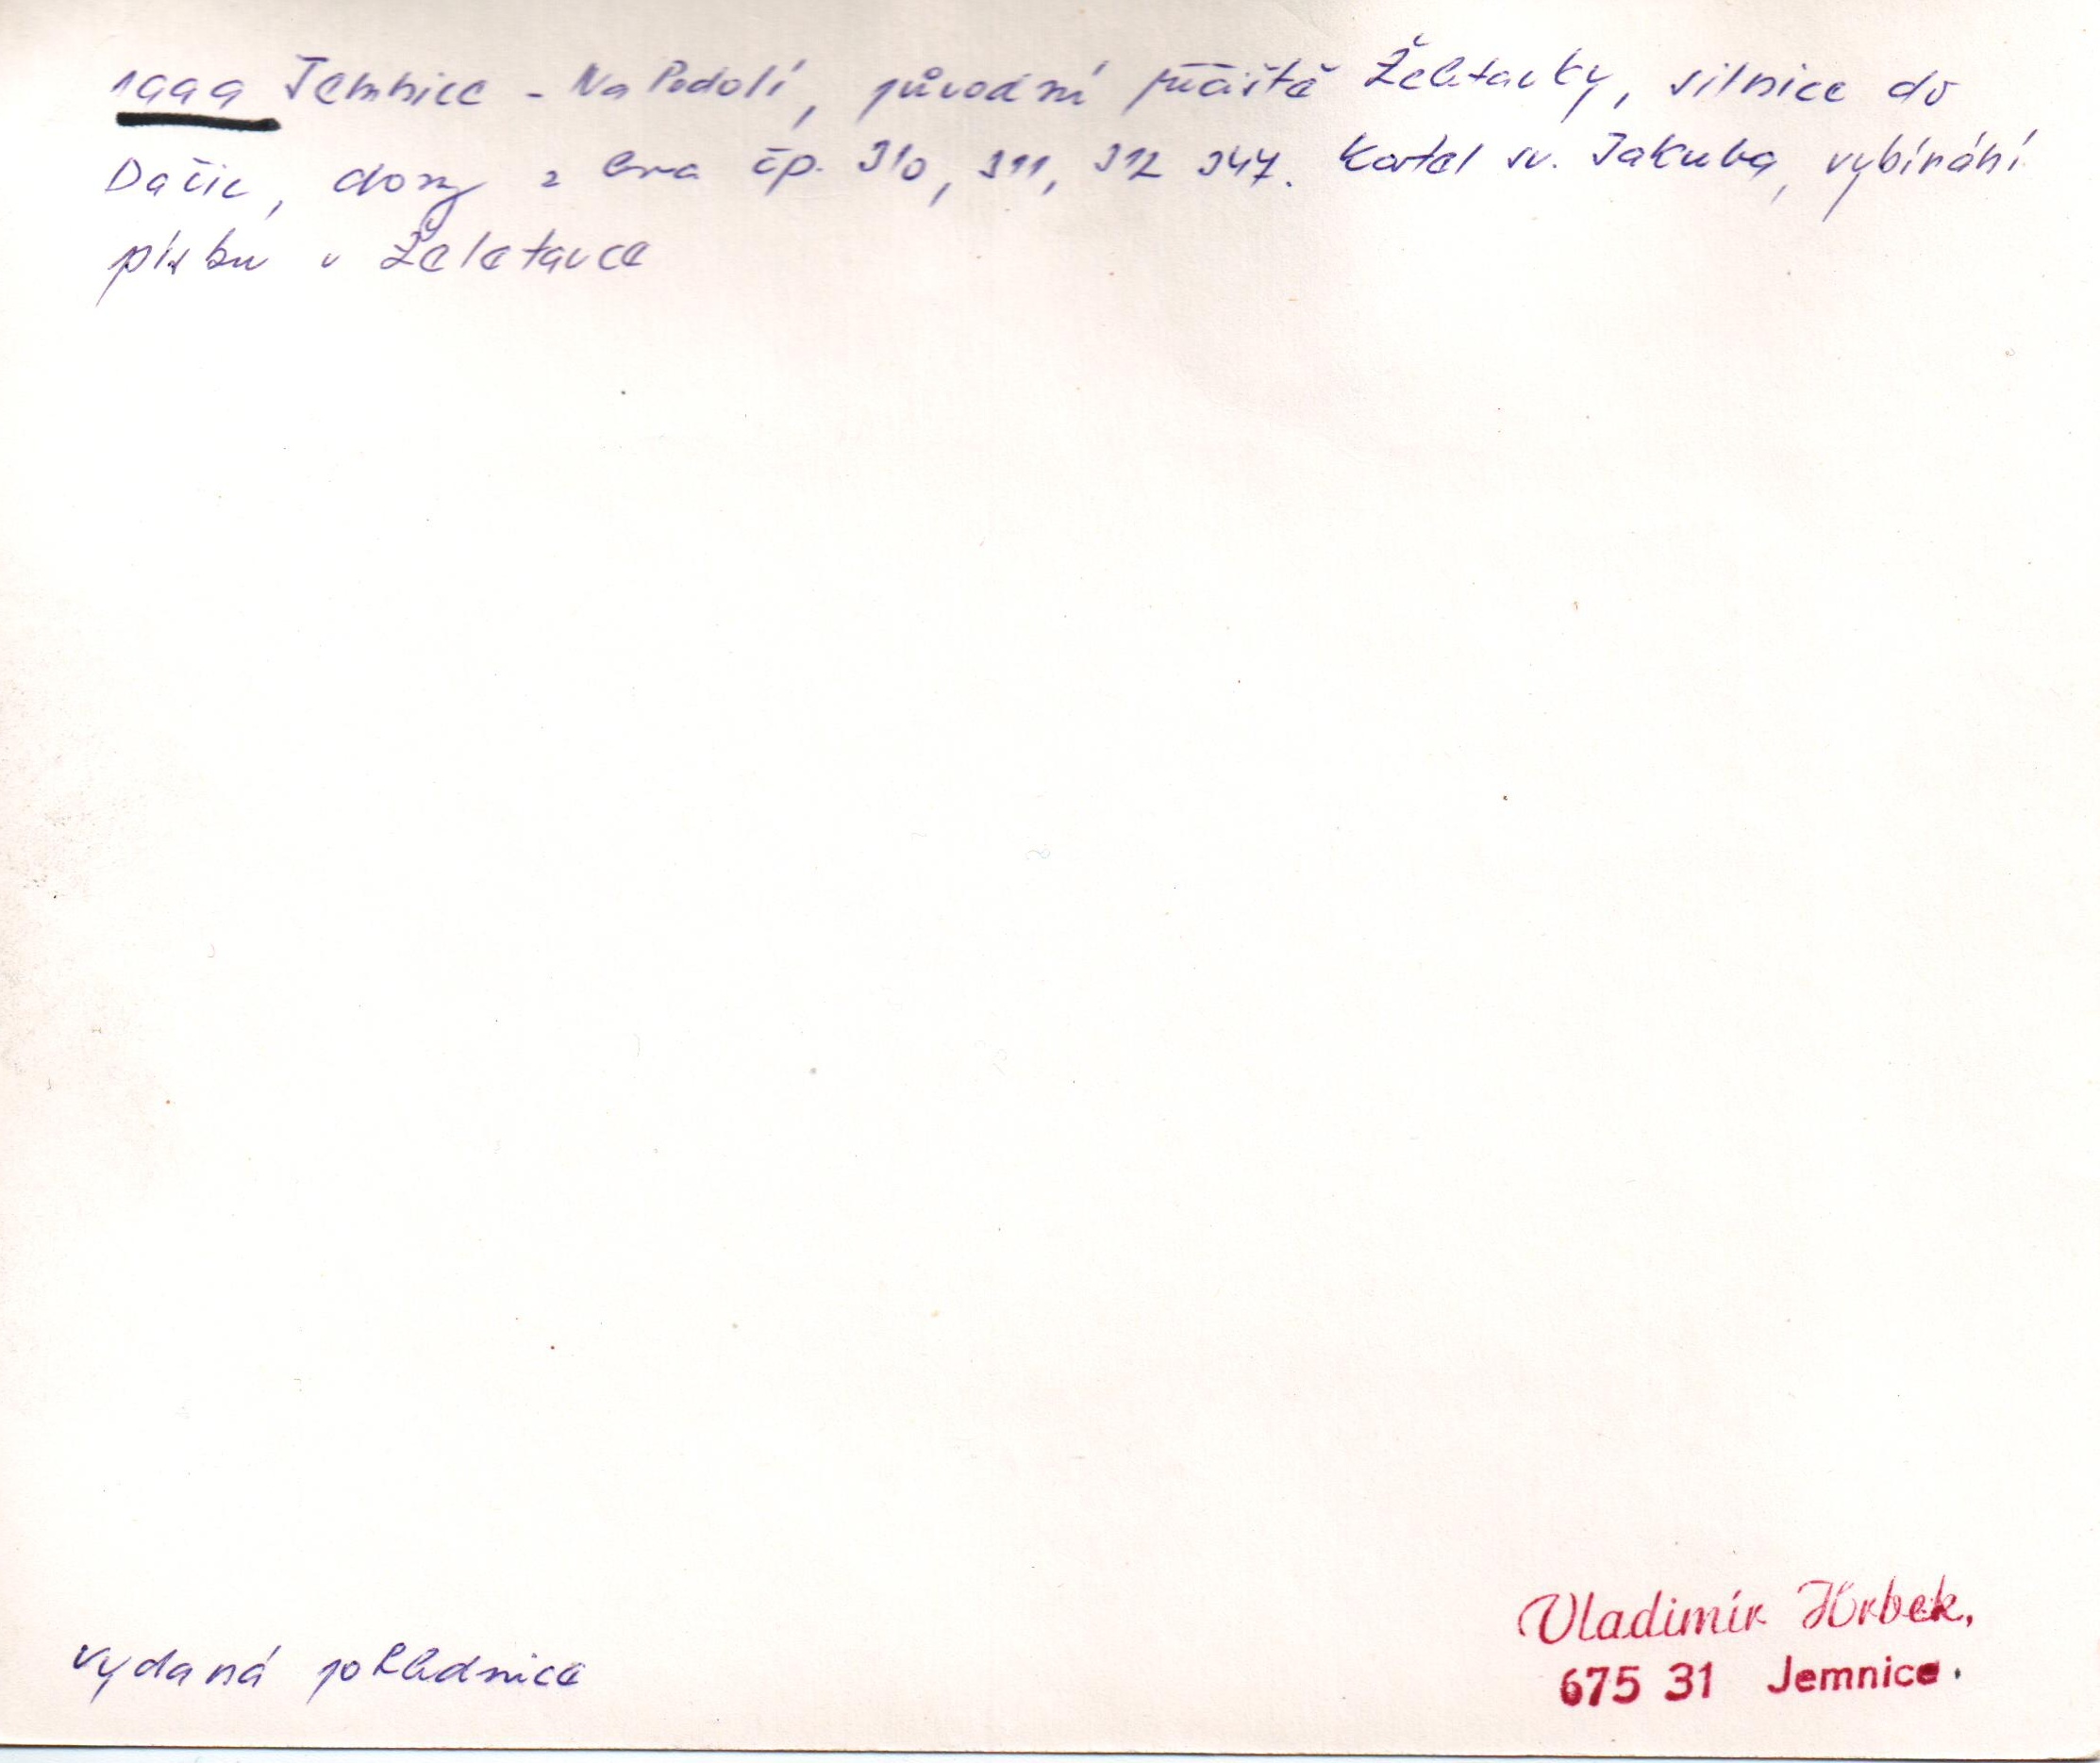 1999 Jemnice - Na Podolí, původní řečiště Želetavky, silnice do
Dačic, domy z leva čp. 310, 311, 312 347. Kostel sv. Jakuba, vybírání
písku v Želetavce
vydaná pohlednice
Vladimír Hrbek,
675 31 Jemnice.